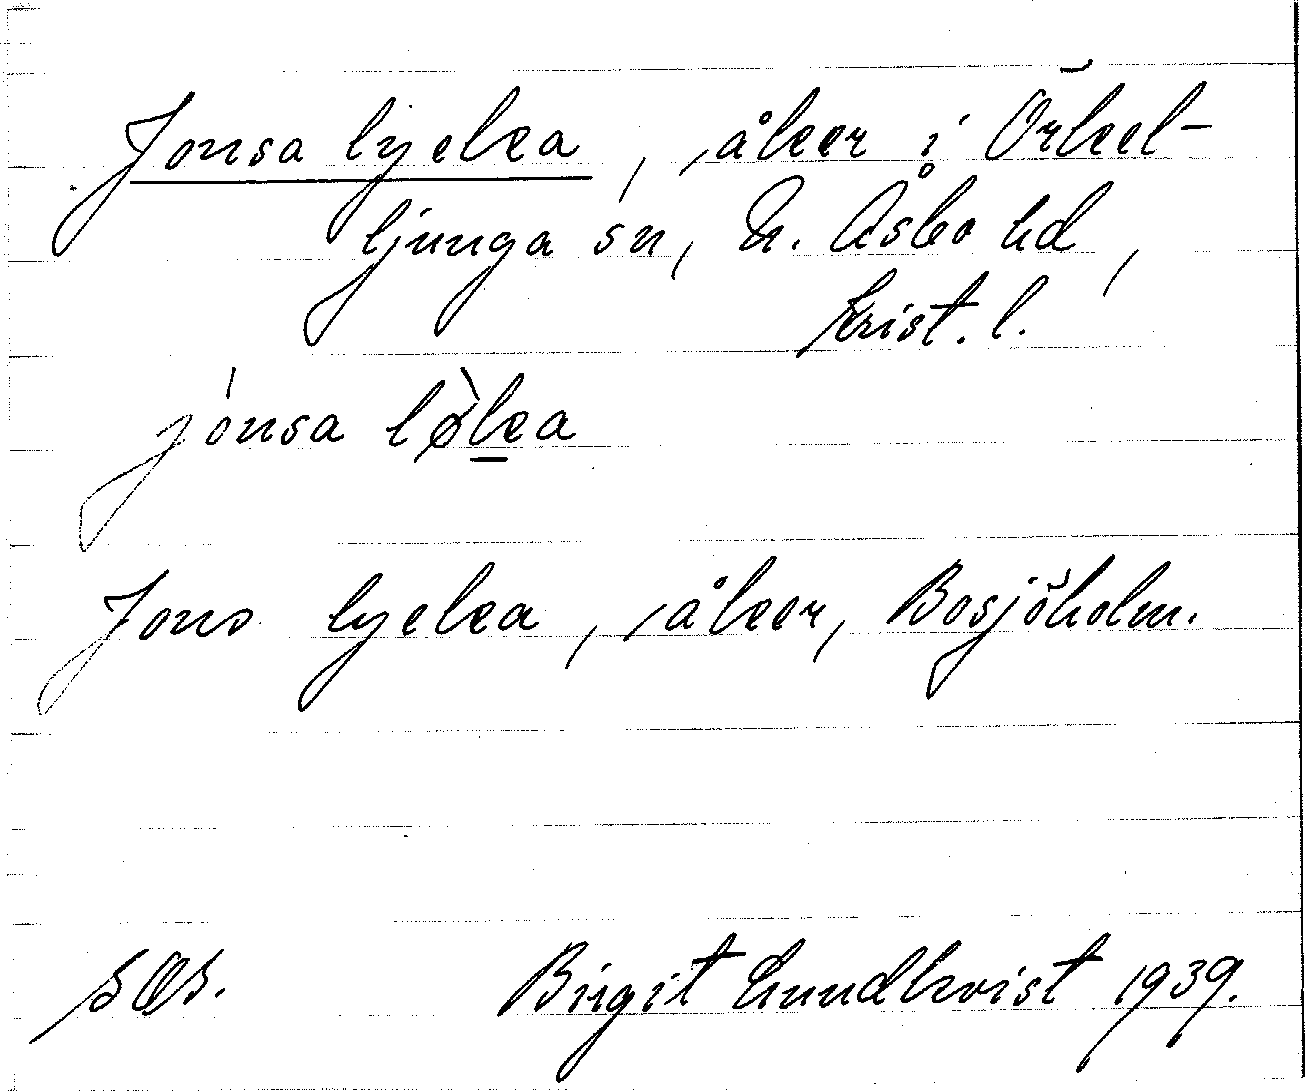 Jonsa lycka, åker i Örkel-
ljunga sn, N. Åsbo hd,
Krist. l.
jónsa lø̀ka
Jons lycka, åker, Bosjöholm.
Birgit Lundkvist 1939.